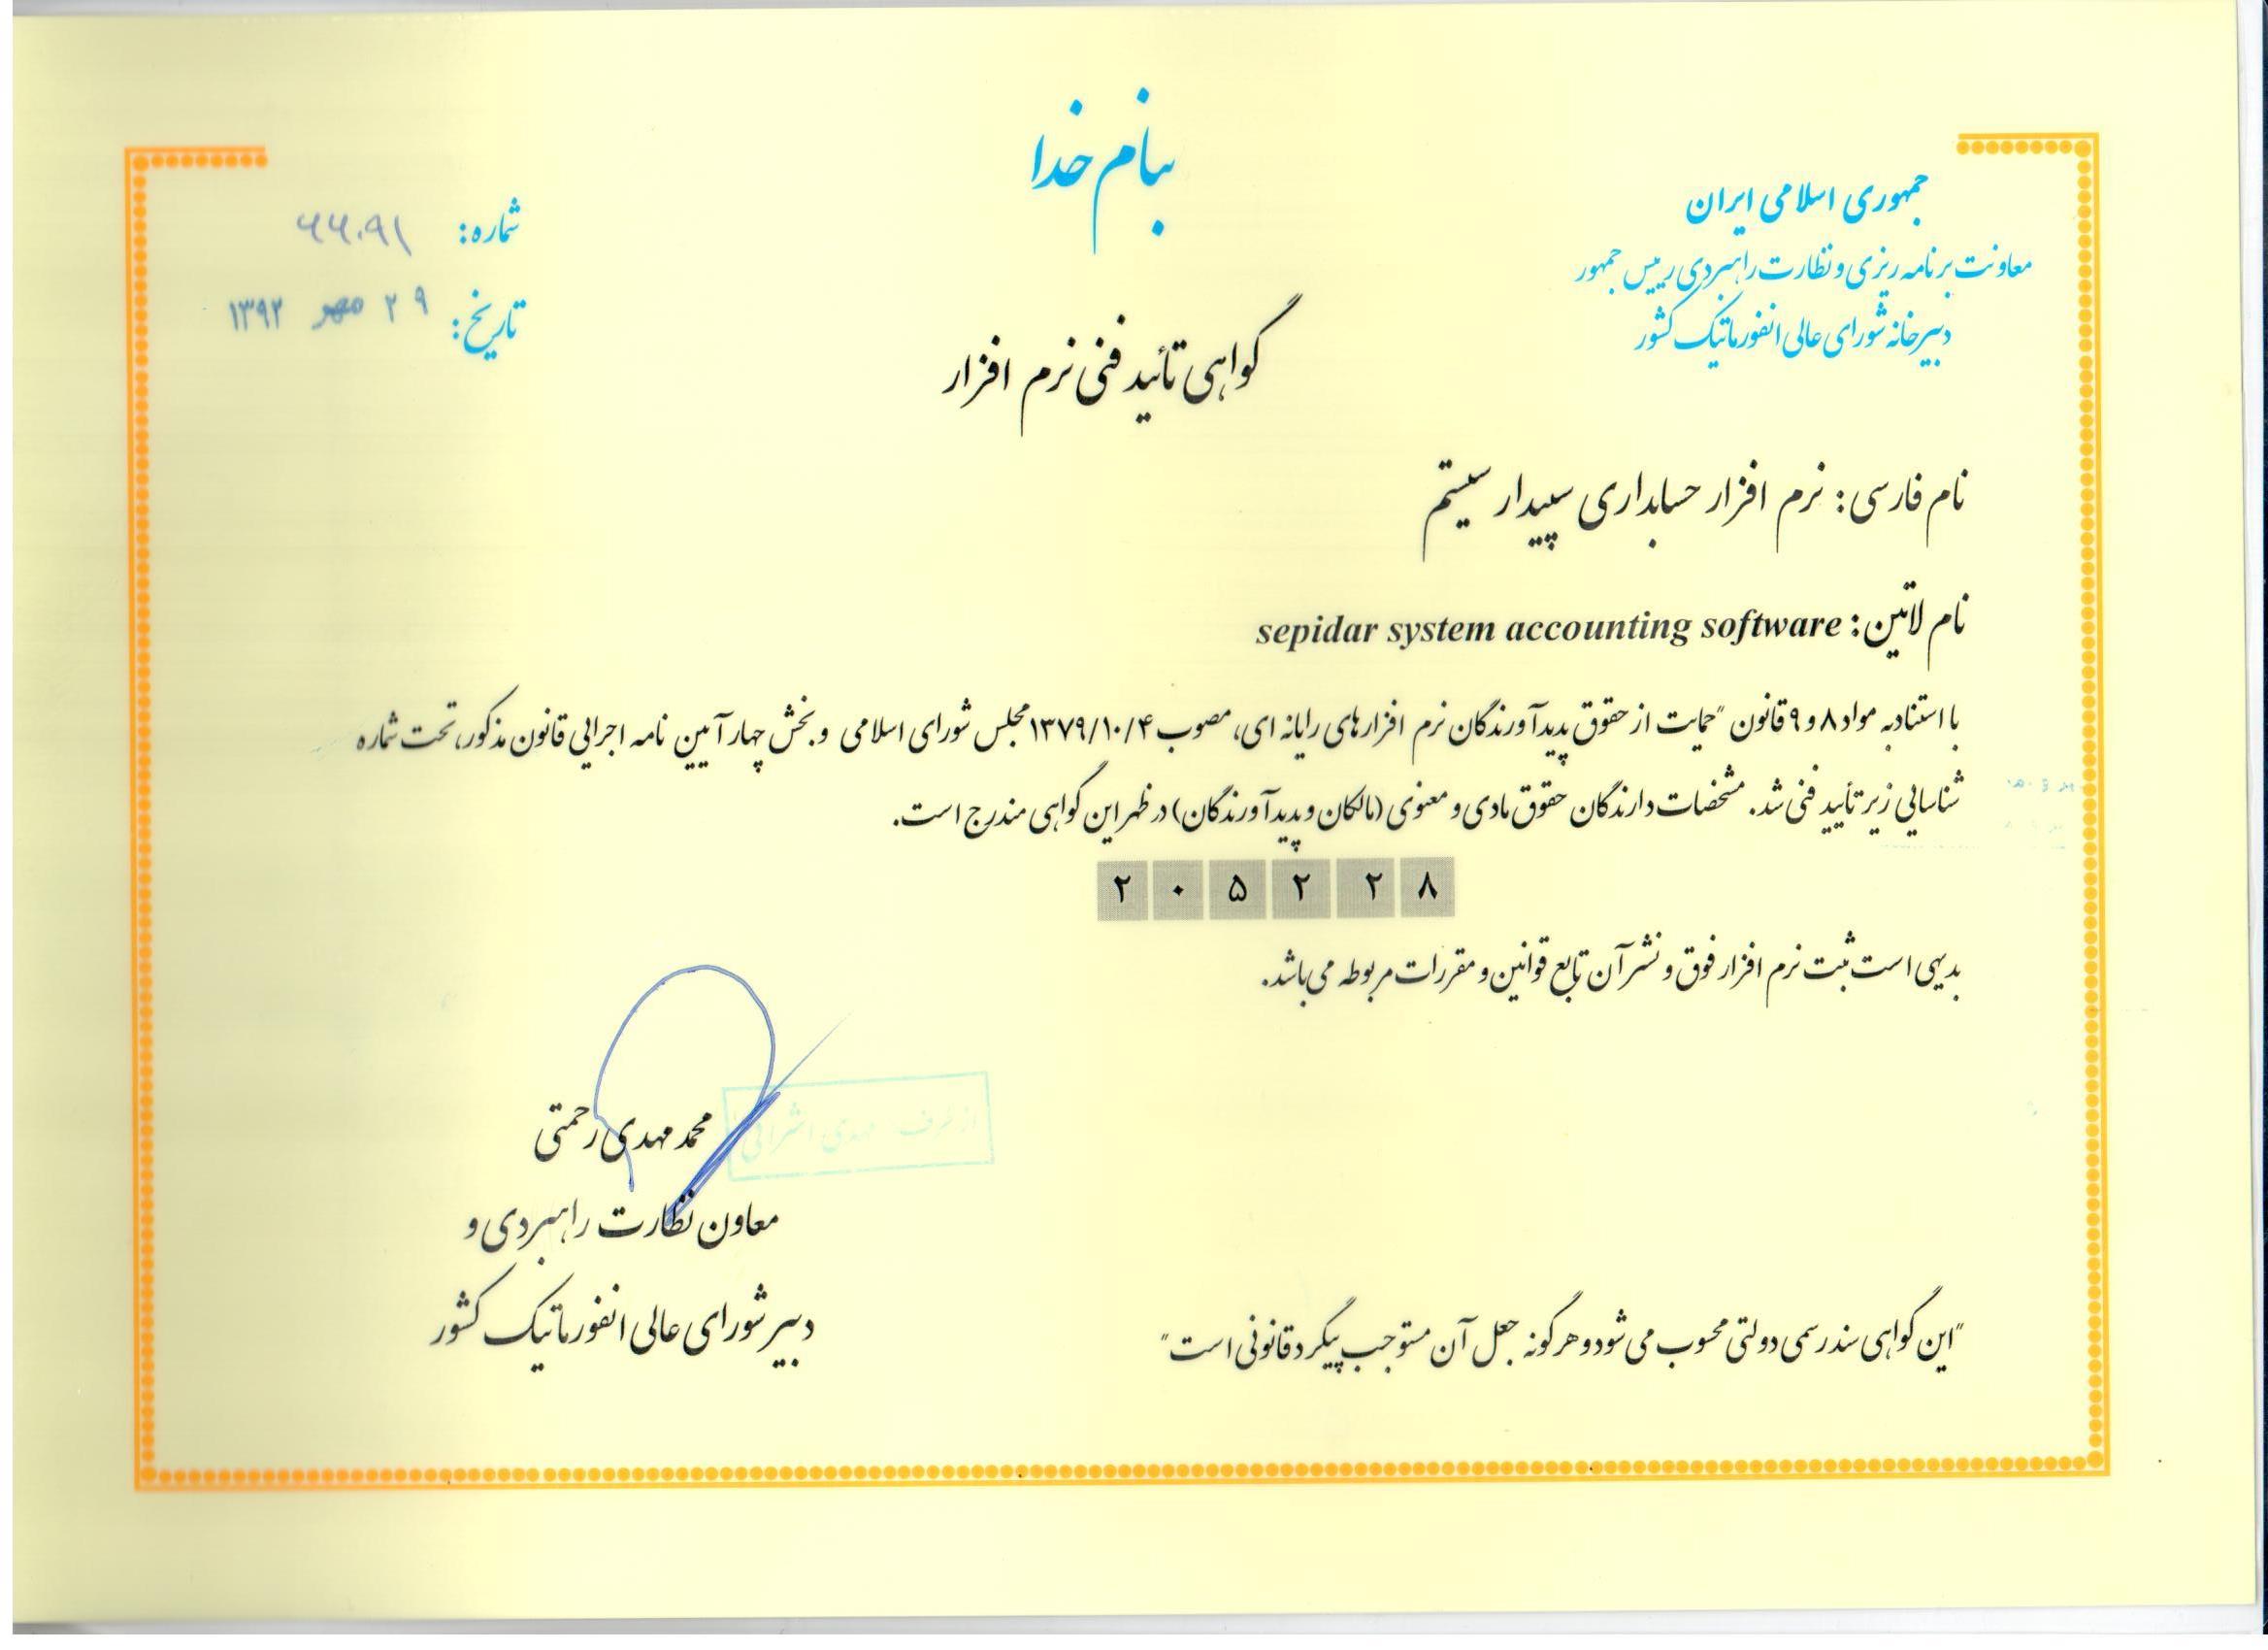 بنام خدا
جمهوری اسلامی ایران
معاونت برنامه ریزی و نظارت راهبردی رییس جمهور
دبیرخانه شورای عالی انفورماتیک کشور
شماره:
تاریخ: ۲۹ مهر ۱۳۹۲
گواهی تأئید فنی نرم افزار
نام فارسی: نرم افزار حسابداری سپیدار سیستم
نام لاتین: sepidar system accounting software
با استناد به مواد ۸ و ۹ قانون "حمایت از حقوق پدیدآورندگان نرم افزارهای رایانه ای، مصوب ۱۳۷۹/۱۰/۴ مجلس شورای اسلامی و بخش چهار آیین نامه اجرایی قانون مذکور، تحت شماره
شناسایی زیر تأیید فنی شد. مشخصات دارندگان حقوق مادی و معنوی (مالکان و پدیدآورندگان) در ظهر این گواهی مندرج است.
۲ ۰ ۵ ۲ ۲ ۸
بدیهی است ثبت نرم افزار فوق و نشر آن تابع قوانین و مقررات مربوطه می باشد.
از طرف مهدی
محمد مهدی رحمتی
معاون نظارت راهبردی و
دبیر شورای عالی انفورماتیک کشور
"این گواهی سند رسمی دولتی محسوب می شود و هرگونه جعل آن مستوجب پیگرد قانونی است"